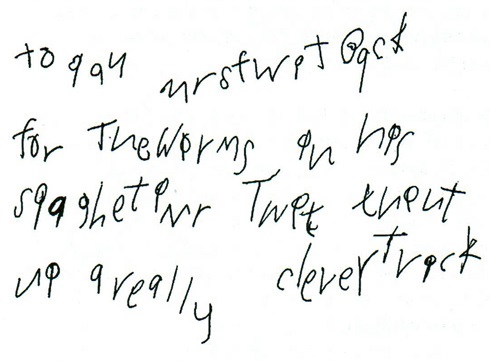 to pay mrstwit Back
for TheWorms in his
spaghetimr Twit thout
up a really cleverTrick